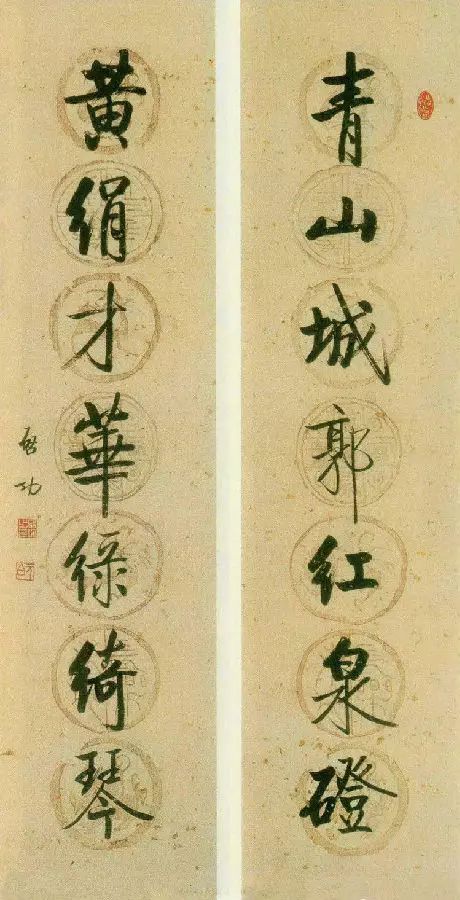 青山城郭红泉磴
黄绢才華緑绮琴
啟功